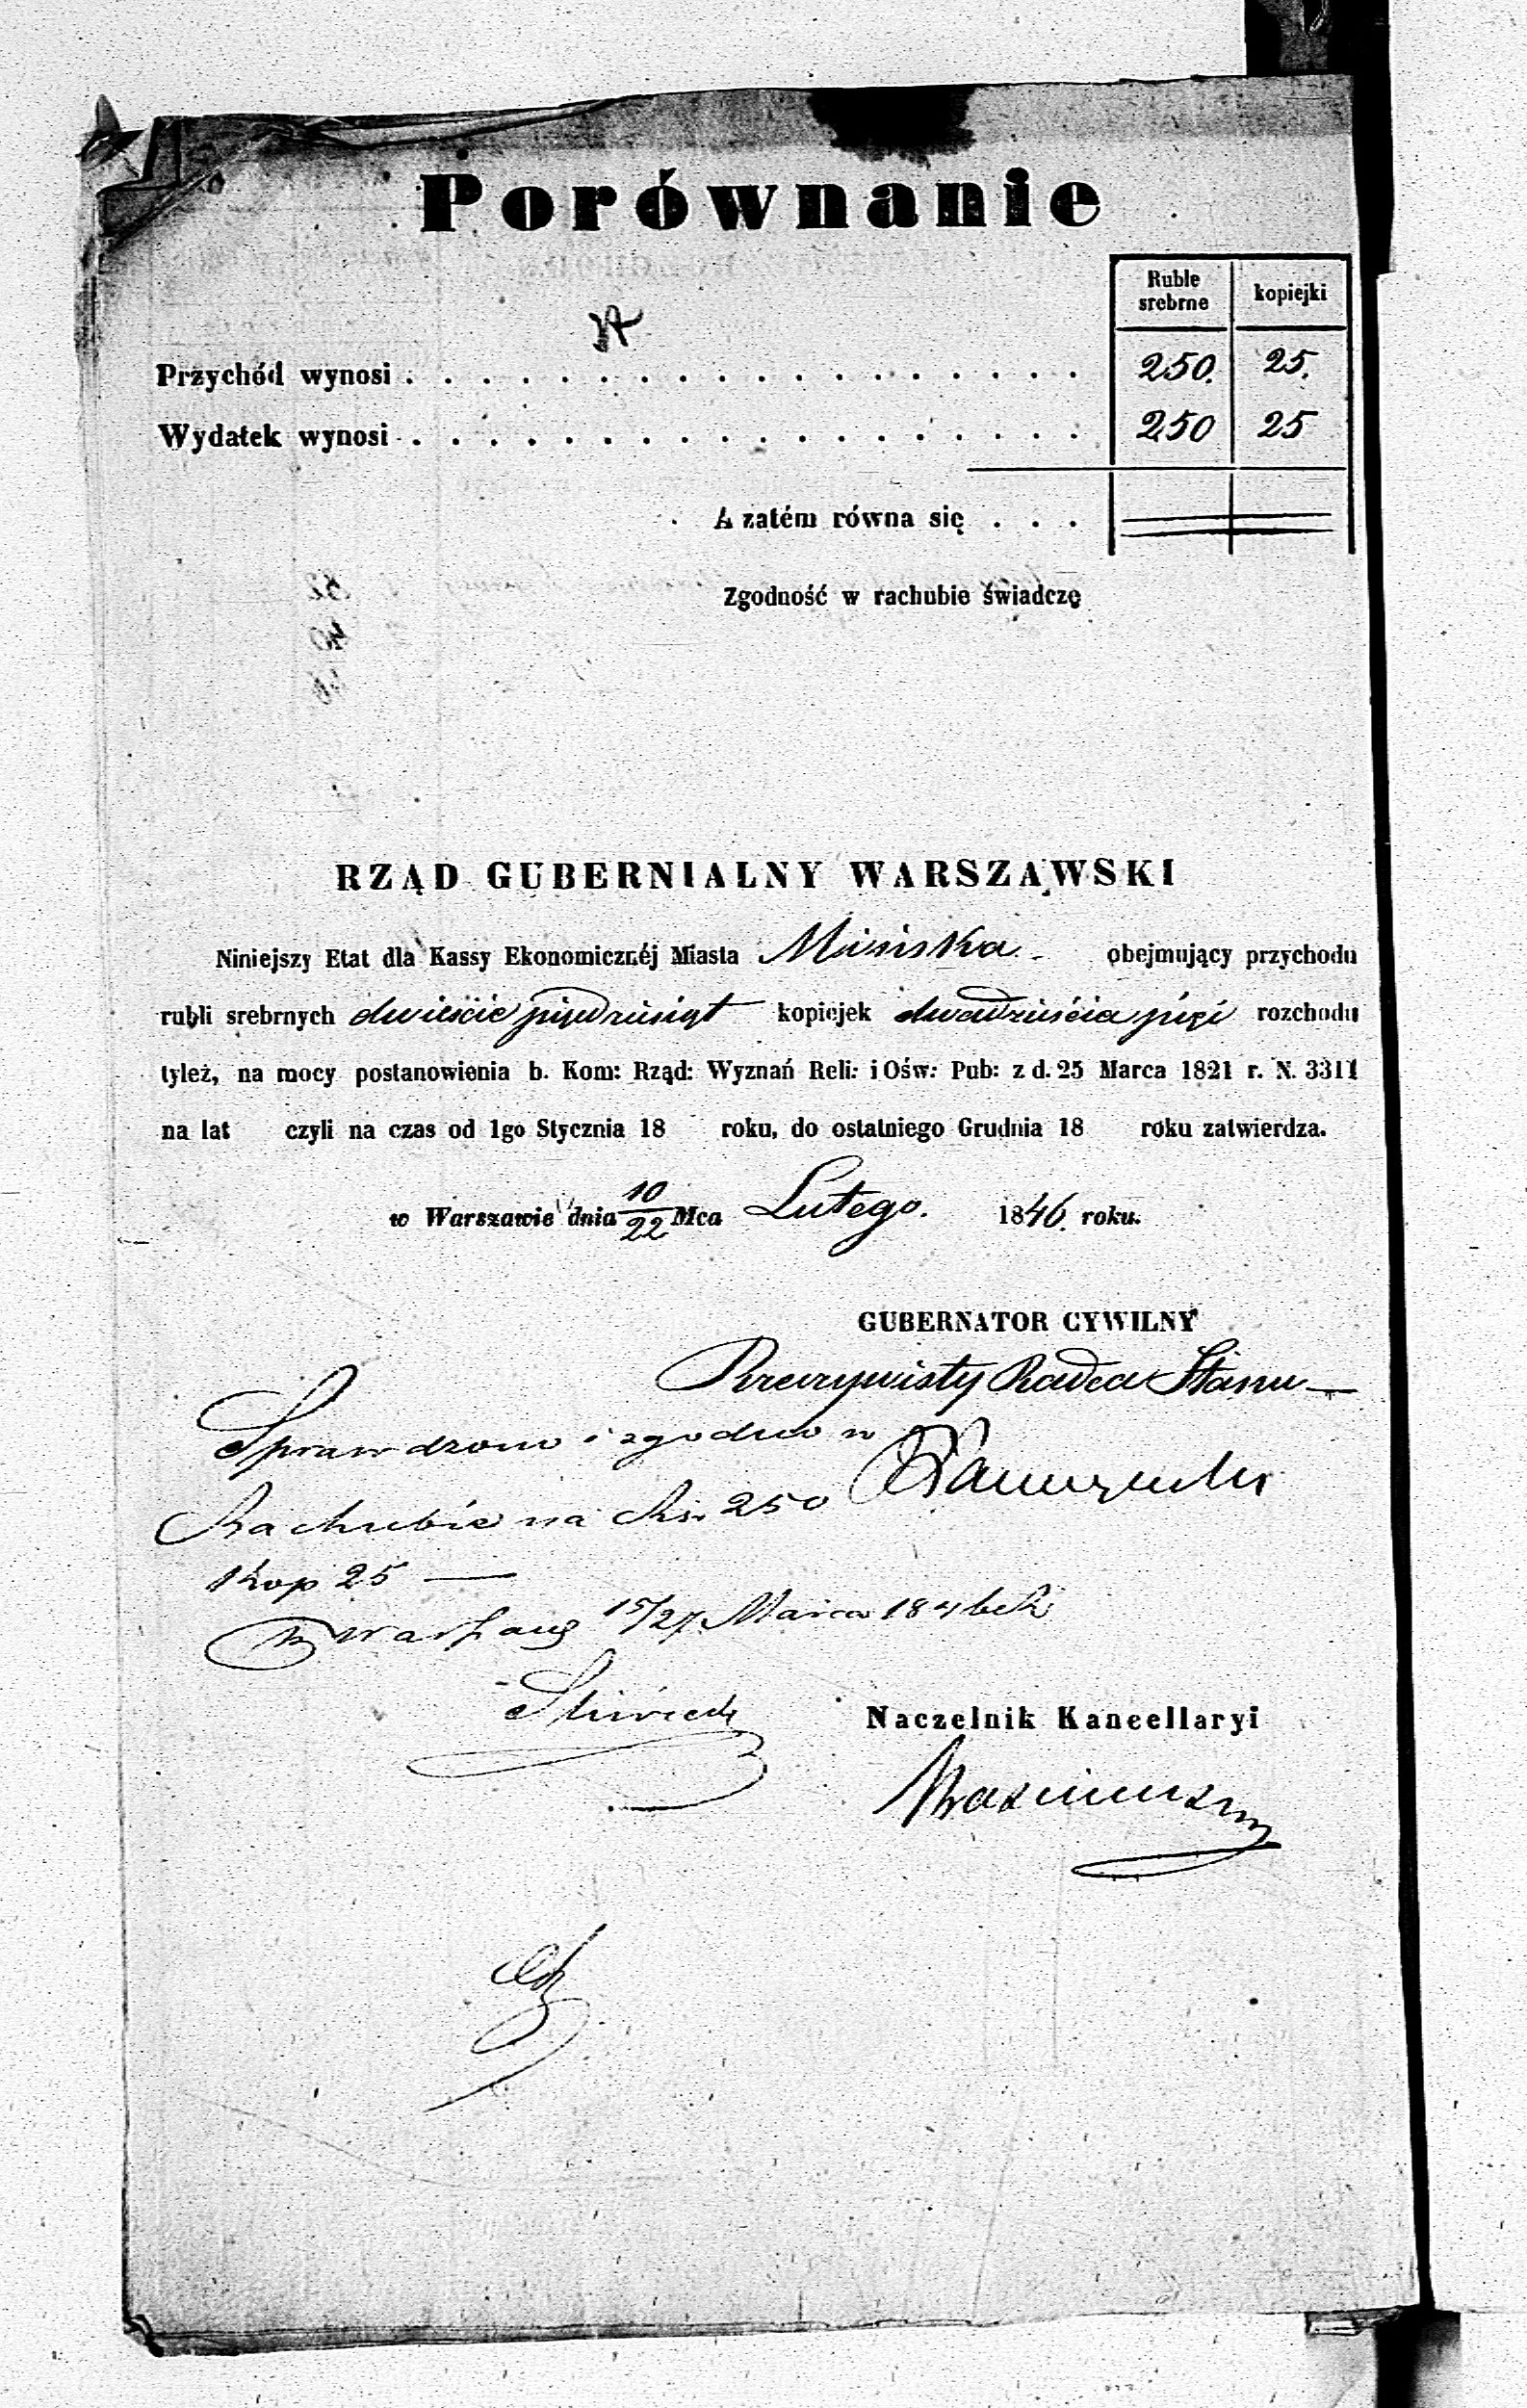 Porównanie
Ruble srebrne kopiejki
Przychód wynosi . . . . . . . . . . . . . . . . . . 250. 25.
Wydatek wynosi . . . . . . . . . . . . . . . . . . 250 25
A zatém równa się . . .
Zgodność w rachubie świadczę
RZĄD GUBERNIALNY WARSZAWSKI
Niniejszy Etat dla Kassy Ekonomicznéj Miasta Mińska obejmujący przychodu
rubli srebrnych dwieście pięćdziesiąt kopiejek dwadzieścia pięć rozchodu
tyleż, na mocy postanowienia b. Kom: Rząd: Wyznań Reli: i Ośw: Pub: z d. 25 Marca 1821 r. N. 3311
na lat czyli na czas od 1go Stycznia 18 roku, do ostatniego Grudnia 18 roku zatwierdza.
w Warszawie dnia 10/22 Mca Lutego. 1846. roku.
GUBERNATOR CYWILNY
Rzeczywisty Radca Stanu
Sprawdzono i zgodno w
Rachubie na Rsr 250
kop 25 —
w Warszawie 15/27 Marca 1846
Naczelnik Kancellaryi